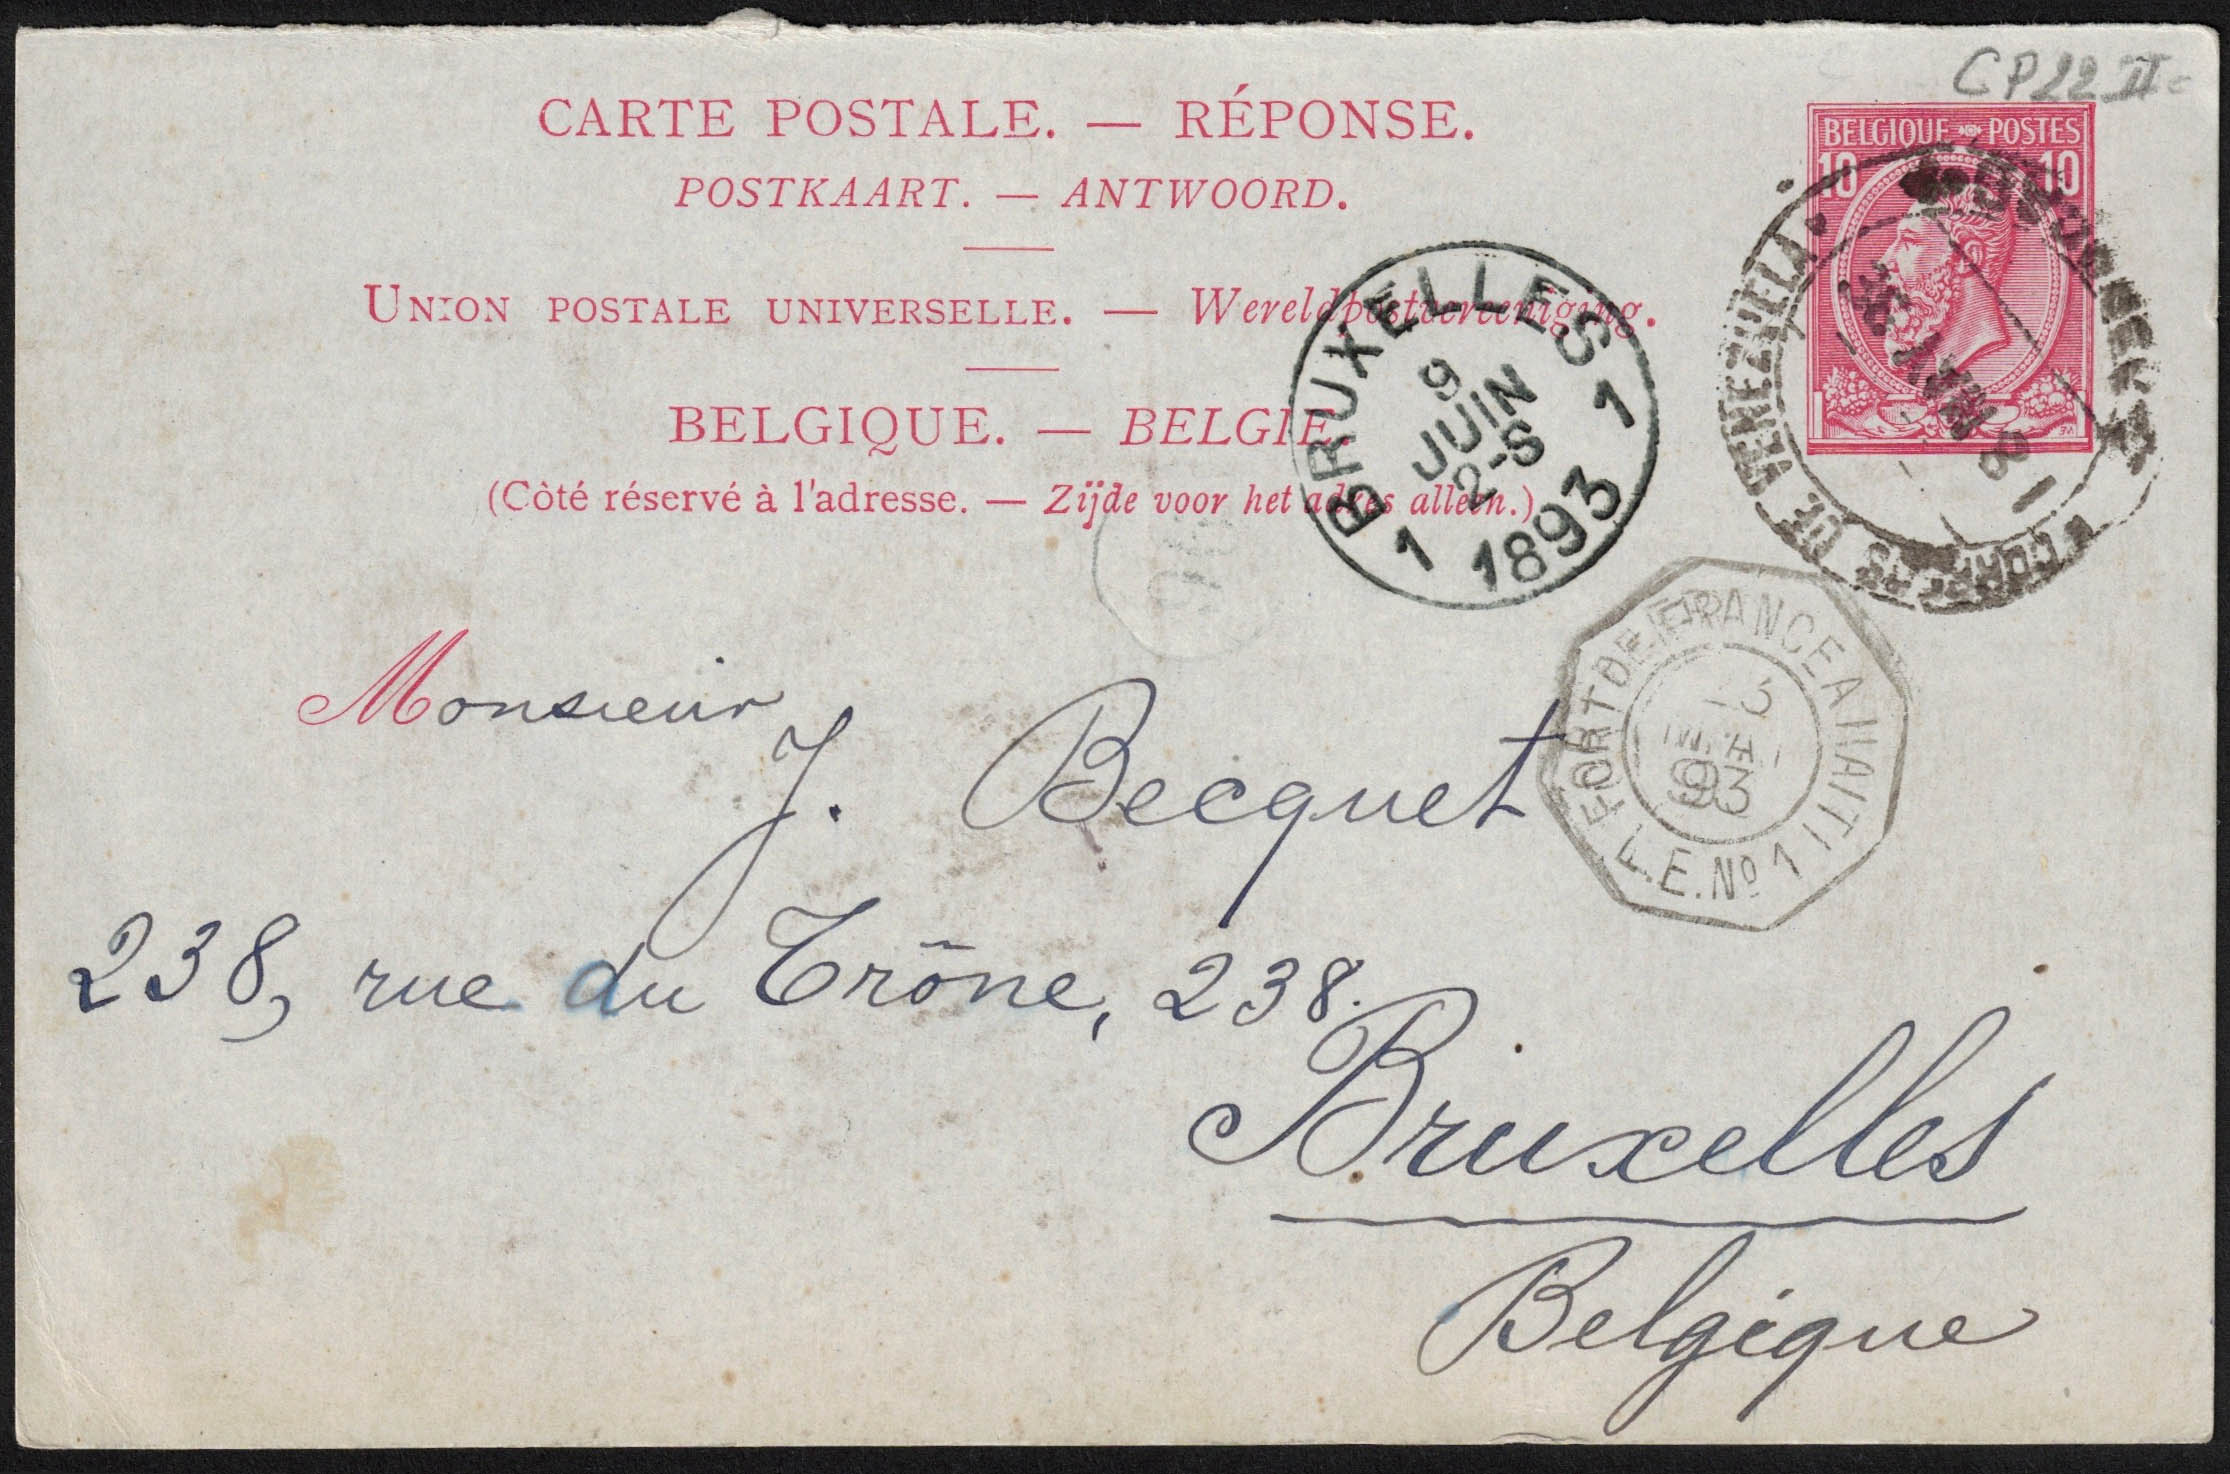 CP22 II
CARTE POSTALE. — RÉPONSE.
POSTKAART. — ANTWOORD.
UNION POSTALE UNIVERSELLE. — Wereldpostvereeniging.
BELGIQUE. — BELGIE.
(Côté réservé à l'adresse. — Zijde voor het adres alleen.)
BELGIQUE POSTES
10 10
CORREOS DE VENEZUELA
18 MAY 93
BRUXELLES
9
JUIN
2-S
1893
1 1
FORT DE FRANCE A HAITI
93
L.E.Nº 1
Monsieur
J. Becquet
238, rue du Trône, 238.
Bruxelles
Belgique